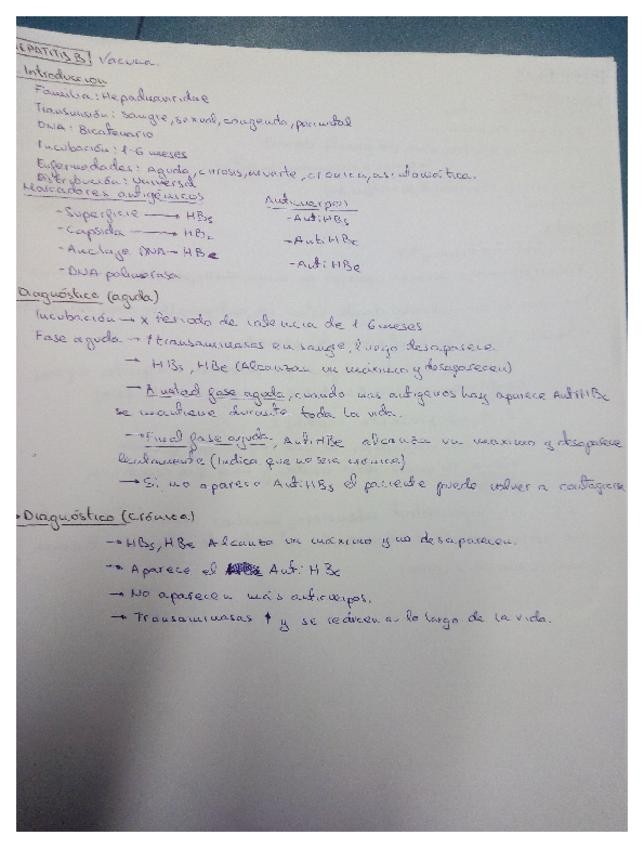 HEPATITIS B Vacuna.
Introducción
Familia: Hepadnaviridae
Transmisión: Sangre, sexual, congenita, perinatal
DNA: Bicatenario
Incubación: 1-6 meses
Enfermedades: Aguda, cirrosis, muerte, crónica, asintomática.
Distribución: Universal
Marcadores antigénicos Anticuerpos
-Superficie → HBs -AntiHBs
-Capsida → HBc -AntiHBc
-Anclaje DNA → HBe -AntiHBe
-DNA polimerasa
Diagnóstico (aguda)
Incubación → x Periodo de latencia de 1 6 meses
Fase aguda → ↑transaminasas en sangre, luego desaparece.
→ HBs, HBe (Alcanzan un máximo y desaparecen)
→ A mitad fase aguda, cuando más antigenos hay aparece AntiHBc
se mantiene durante toda la vida.
→ Final fase aguda, AntiHBe alcanza un maximo y desaparece
lentamente (Indica que no sera crónica)
→ Si no aparece AntiHBs el paciente puede volver a contagiarse
Diagnóstico (Crónica)
→ HBs, HBe Alcanza un máximo y no desaparecen.
→ Aparece el Anti HBc
→ No aparecen más anticuerpos.
→ Transaminasas ↑ y se reducen a lo largo de la vida.